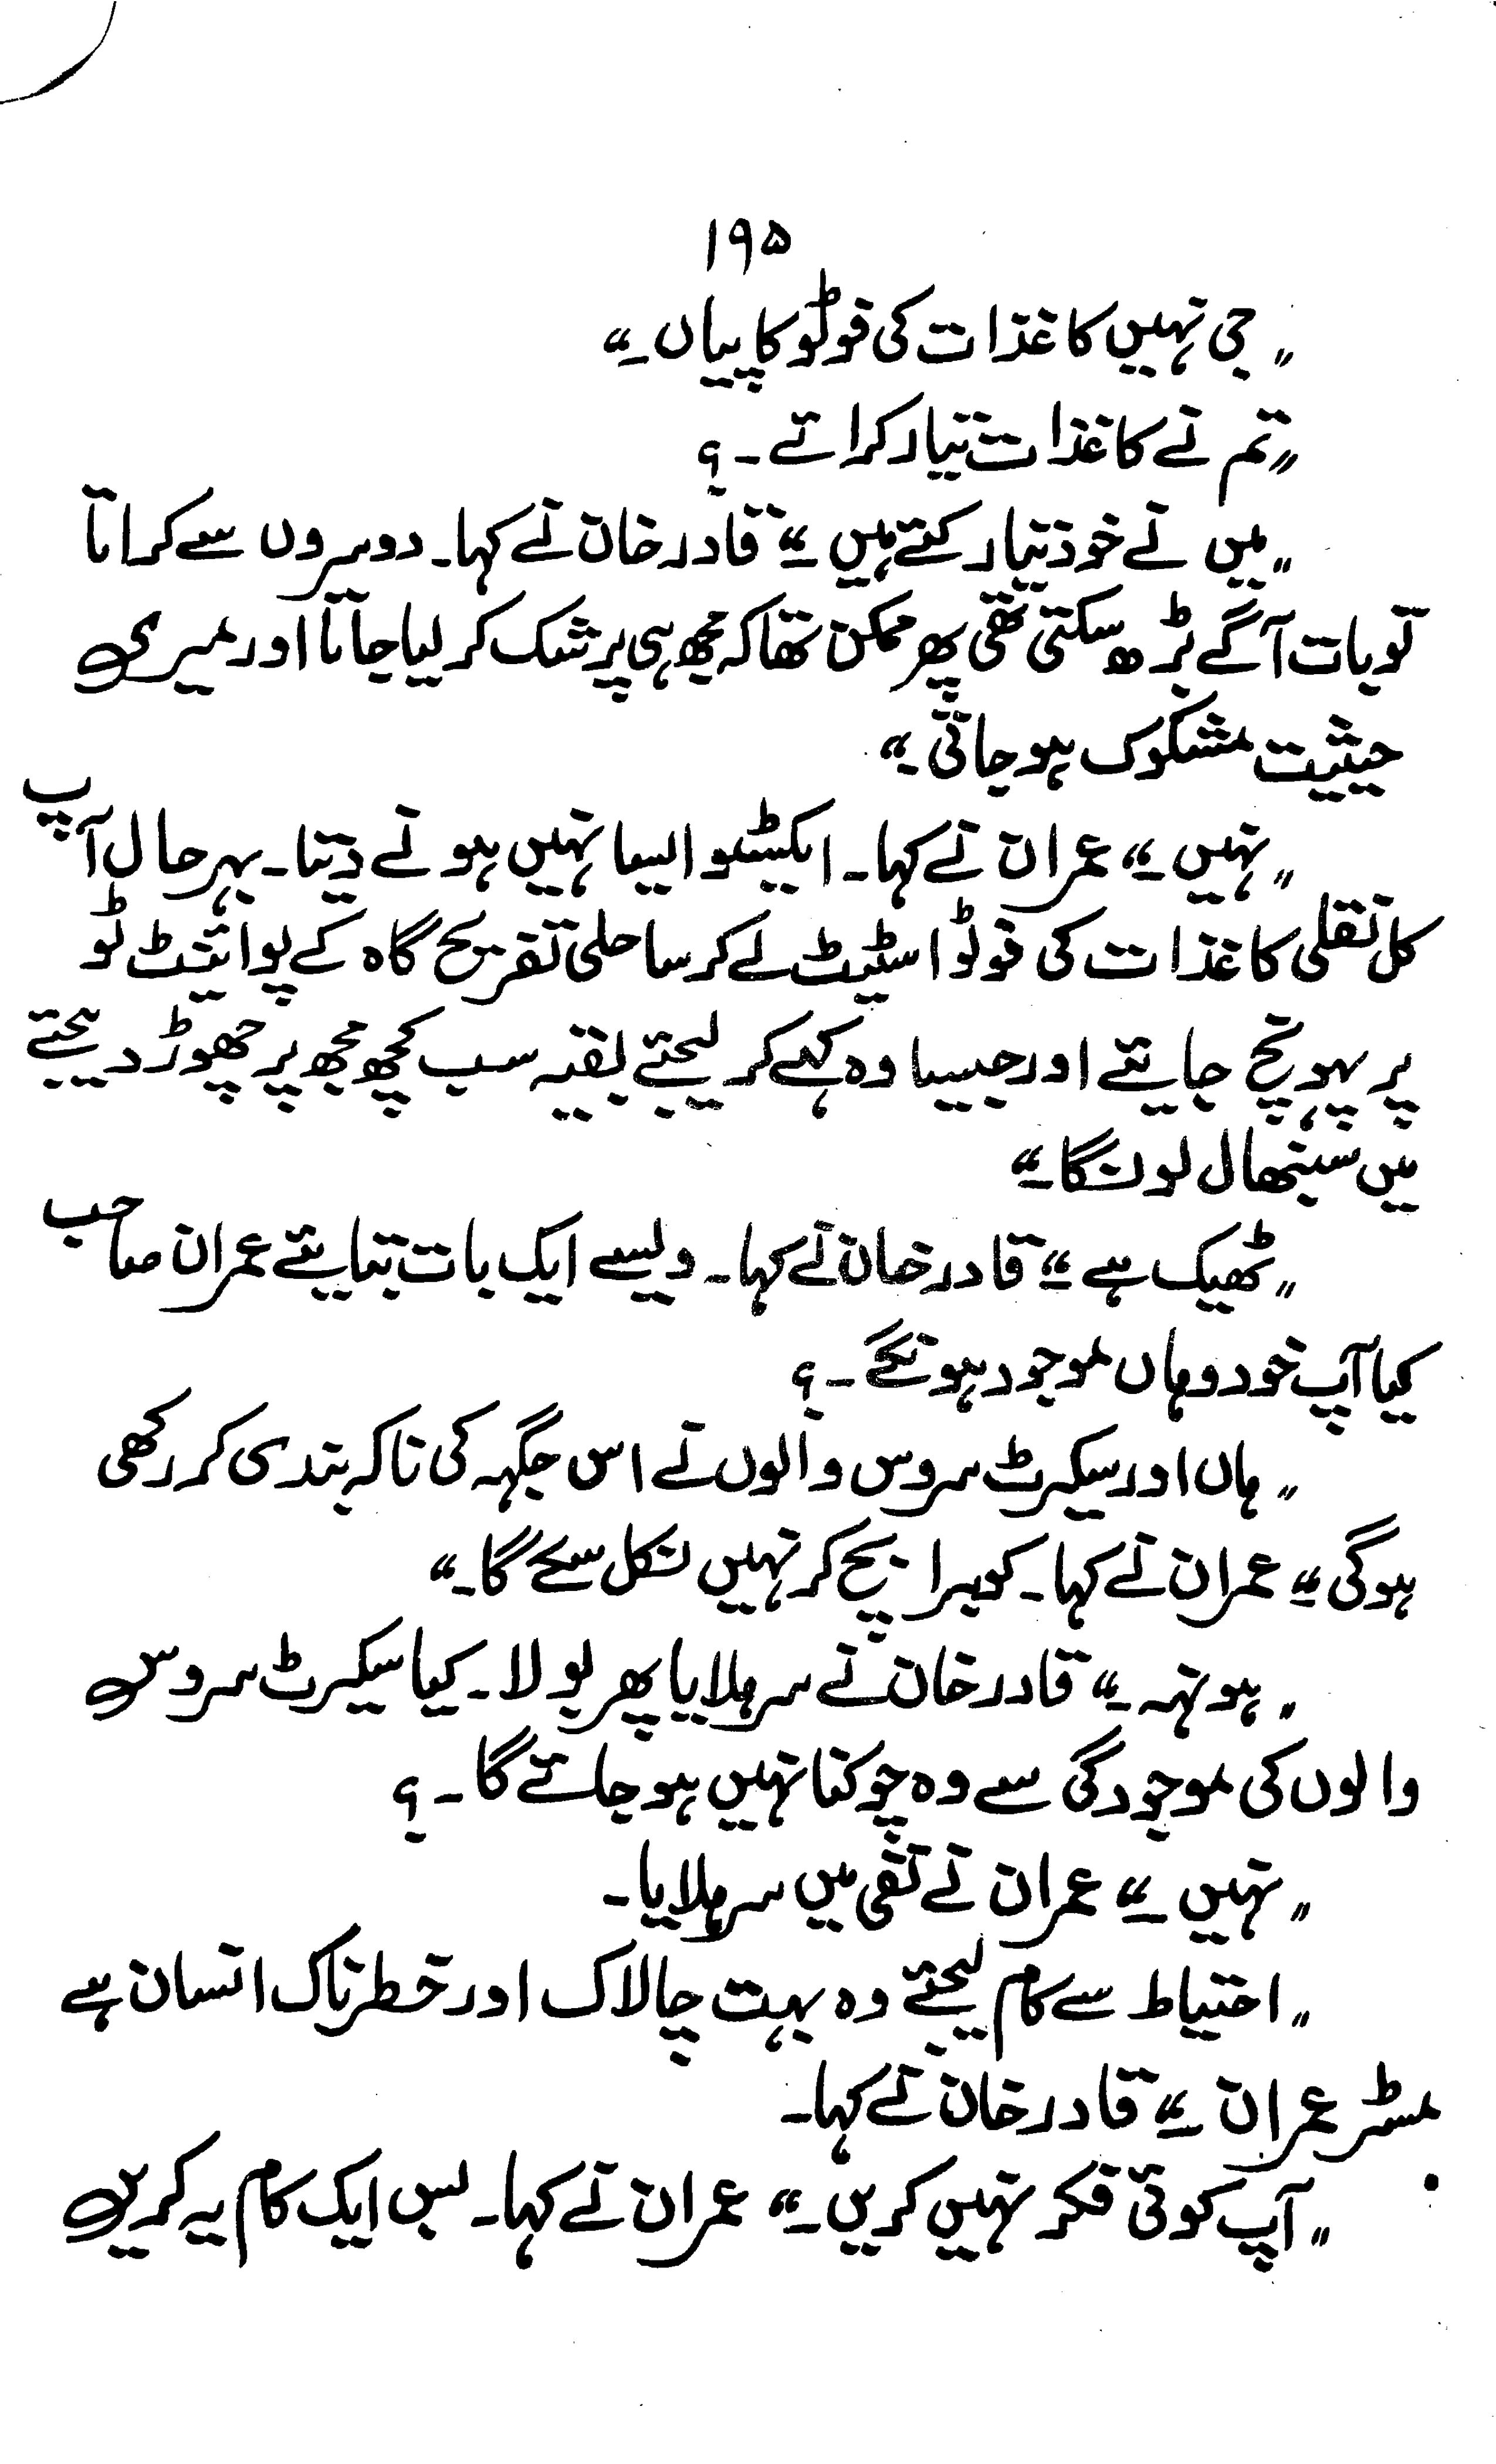 ۱۹۵
"جی نہیں کاغذات کی فوٹو کاپیاں۔"
"تم نے کاغذات تیار کرائے۔؟
"میں نے خود تیار کئے ہیں۔" قادر خان نے کہا۔ دوسروں سے کراتا
تو بات آگے بڑھ سکتی تھی پھر ممکن تھا کہ مجھ ہی پر شک کر لیا جاتا اور میری
حیثیت مشکوک ہو جاتی۔"
"نہیں۔" عمران نے کہا۔ ایکسٹو ایسا نہیں ہونے دیتا۔ بہرحال آپ
کل نقلی کاغذات کی فوٹو اسٹیٹ لے کر ساحلی تفریح گاہ کے پوائنٹ ٹو
پر پہونچ جایئے اور جیسا وہ کہے کر لیجئے بقیہ سب کچھ مجھ پر چھوڑ دیجئے
میں سنبھال لونگا۔"
"ٹھیک ہے۔" قادر خان نے کہا۔ ویسے ایک بات بتایئے عمران صاحب
کیا آپ خود وہاں موجود ہونگے۔؟
"ہاں اور سیکرٹ سروس والوں نے اس جگہہ کی ناکہ بندی کر رکھی
ہوگی۔" عمران نے کہا۔ کوبرا بچ کر نہیں نکل سکے گا۔"
"ہونہہ۔" قادر خان نے سر ہلایا پھر بولا۔ کیا سیکرٹ سروس
والوں کی موجودگی سے وہ چوکنا نہیں ہو جائے گا۔؟
"نہیں۔" عمران نے نفی میں سر ہلایا۔
"احتیاط سے کام لیجئے وہ بہت چالاک اور خطرناک انسان ہے
مسٹر عمران۔" قادر خان نے کہا۔
"آپ کوئی فکر نہیں کریں۔" عمران نے کہا۔ بس ایک کام یہ کریں